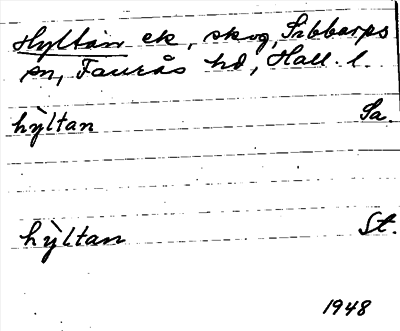 Hyltan ek, skog, Sibbarps
sn, Faurås hd, Hall. l.
hỳltan Sa.
hỳltan St.
1948